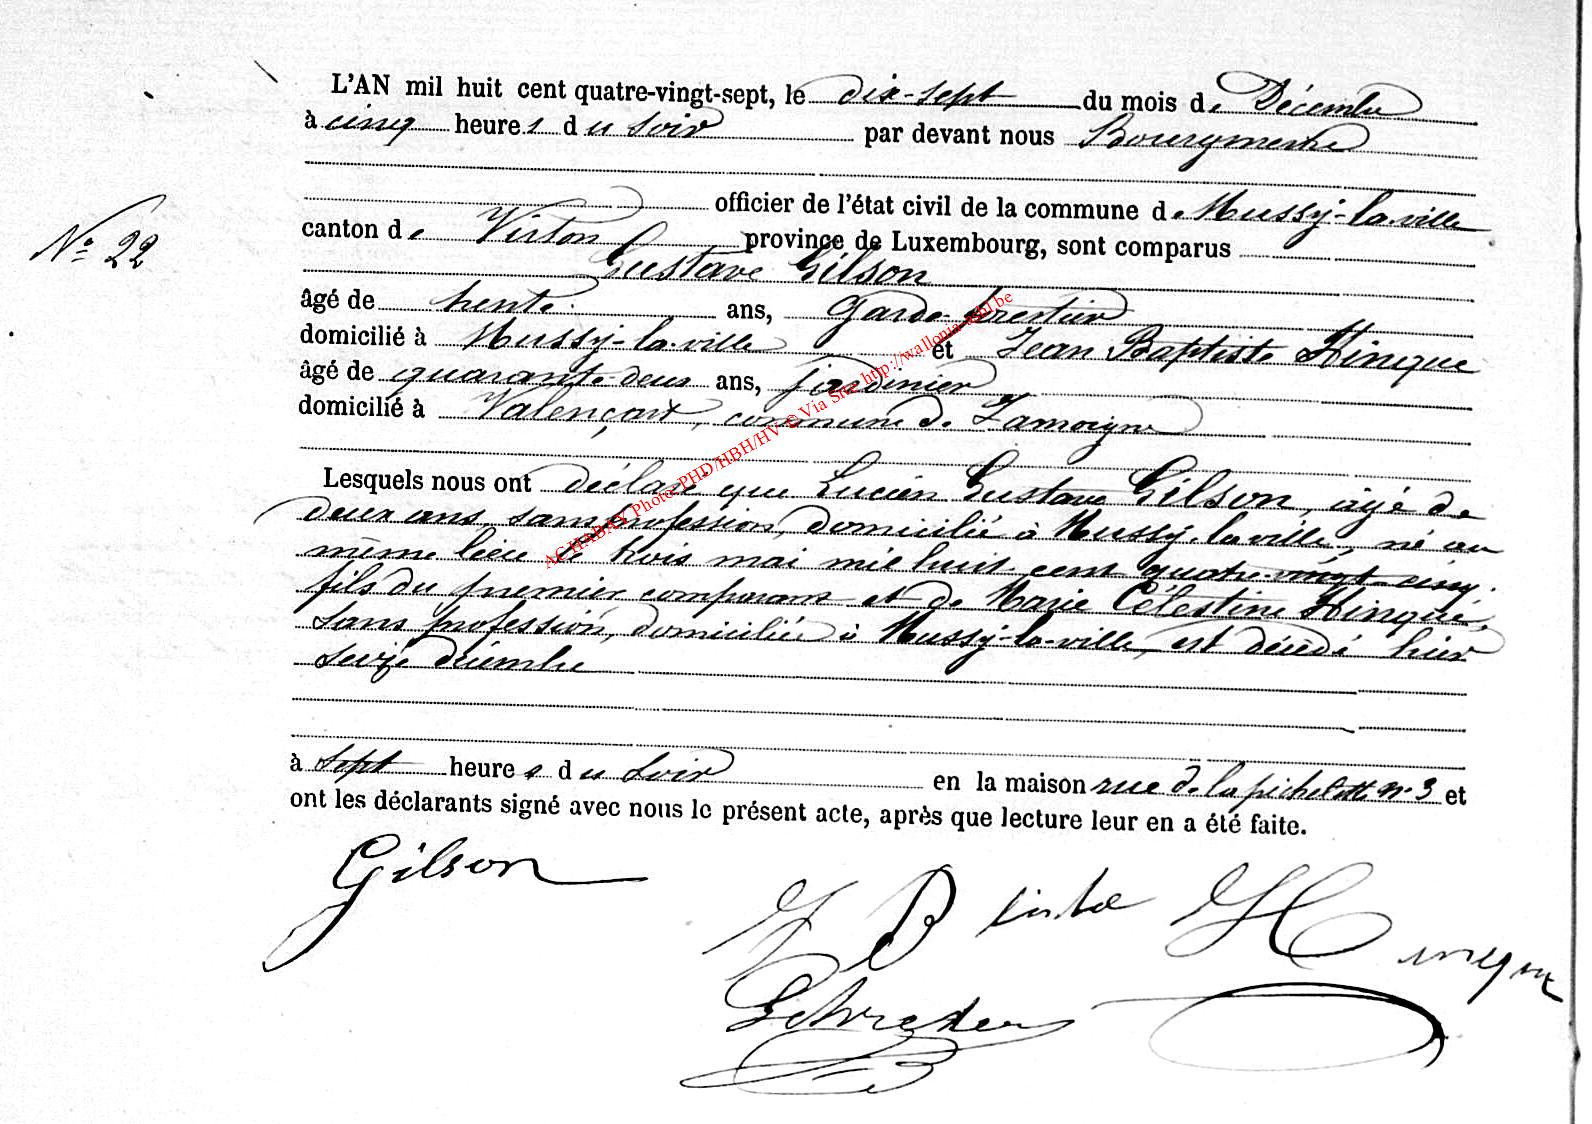 L'AN mil huit cent quatre-vingt-sept, le dix-sept du mois de Décembre
à cinq heures du soir par devant nous Bourgmestre
officier de l'état civil de la commune de Mussy-la-ville
N° 22
canton de Virton province de Luxembourg, sont comparus
Gustave Gilson
âgé de trente ans, Garde-forestier
domicilié à Mussy-la-ville et Jean Baptiste Hinque
âgé de quarante-deux ans, jardinier
domicilié à Valençart, commune de Jamoigne
Lesquels nous ont déclaré que Lucien Gustave Gilson, âgé de
deux ans, sans profession, domicilié à Mussy-la-ville, né au
même lieu le trois mai mil huit cent quatre-vingt-cinq,
fils du premier comparant et de Marie Célestine Hinque,
sans profession, domiciliée à Mussy-la-ville, est décédé hier
seize décembre
à sept heures du soir en la maison rue de la pichelotte n° 3 et
ont les déclarants signé avec nous le présent acte, après que lecture leur en a été faite.
Gilson
J B Hinque
ACHABAY Photo PHD/HBH/HV © Via Site http://wallonia-asbl.be